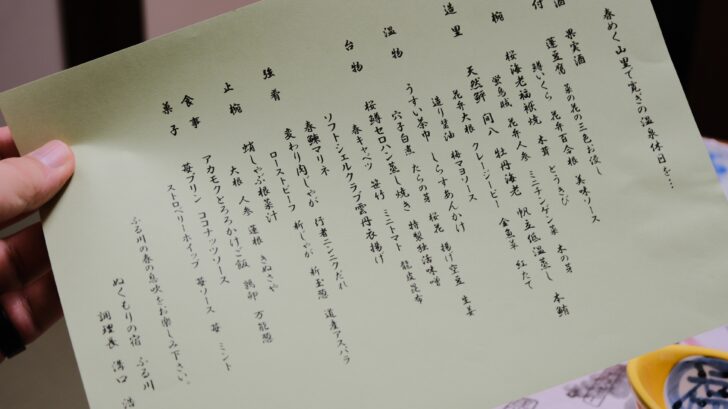 春めく山里で寛ぎの温泉休日を…
酒 果実酒
付 蓮豆腐 菜の花の三色お浸し 美味ソース
鱒いくら 花弁百合根 とうきび 木の芽
椀 桜海老福根焼 木茸 ミニチンゲン菜 本鮪
蛍烏賊 花弁人参 帆立低温蒸し 紅たで
造里 天然鮃 間八 牡丹海老 金魚草
花弁大根 クレージーピー
造り醤油 梅マヨソース
温物 うすい茶巾 しらすあんかけ 揚げ空豆 生姜
穴子白煮 たらの芽 桜花
台物 桜鱒セロハン蒸し焼き 特製独活味噌
春キャベツ 笹竹 ミニトマト 龍皮昆布
ソフトシェルクラブ雲丹衣揚げ
強肴 春鰊マリネ 行者ニンニクだれ
変わり肉じゃが 新じゃが 新玉葱 道産アスパラ
ローストビーフ
止椀 蛸しゃぶ根菜汁
大根 人参 蓮根 きぬさや
食事 アカモクとろろかけご飯 鶉卵 万能葱
菓子 苺プリン ココナッツソース 苺ソース 苺 ミント
ストロベリーホイップ
ふる川の春の息吹をお楽しみ下さい。
ぬくもりの宿 ふる川
調理長 溝口 浩
福